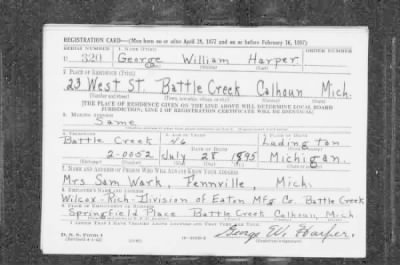 REGISTRATION CARD—(Men born on or after April 28, 1877 and on or before February 16, 1897)
SERIAL NUMBER 1. NAME (Print) ORDER NUMBER
U 320 George William Harper
2. PLACE OF RESIDENCE (Print)
23 West St. Battle Creek Calhoun Mich.
(Number and street) (Town, township, village, or city) (County) (State)
[THE PLACE OF RESIDENCE GIVEN ON THE LINE ABOVE WILL DETERMINE LOCAL BOARD
JURISDICTION; LINE 2 OF REGISTRATION CERTIFICATE WILL BE IDENTICAL]
3. MAILING ADDRESS
Same
4. TELEPHONE 5. AGE IN YEARS 6. PLACE OF BIRTH
Battle Creek 46 Ludington
DATE OF BIRTH
2-0052 July 28 1895 Michigan.
(Exchange) (Number) (Mo.) (Day) (Yr.) (State or country)
7. NAME AND ADDRESS OF PERSON WHO WILL ALWAYS KNOW YOUR ADDRESS
Mrs Sam Wark, Fennville, Mich.
8. EMPLOYER'S NAME AND ADDRESS
Wilcox-Rich-Division of Eaton Mfg Co. Battle Creek
9. PLACE OF EMPLOYMENT OR BUSINESS
Springfield Place Battle Creek Calhoun, Mich
I AFFIRM THAT I HAVE VERIFIED ABOVE ANSWERS AND THAT THEY ARE TRUE.
D. S. S. Form 1
(Revised 4-1-42) (over) George W. Harper.
(Registrant's signature)